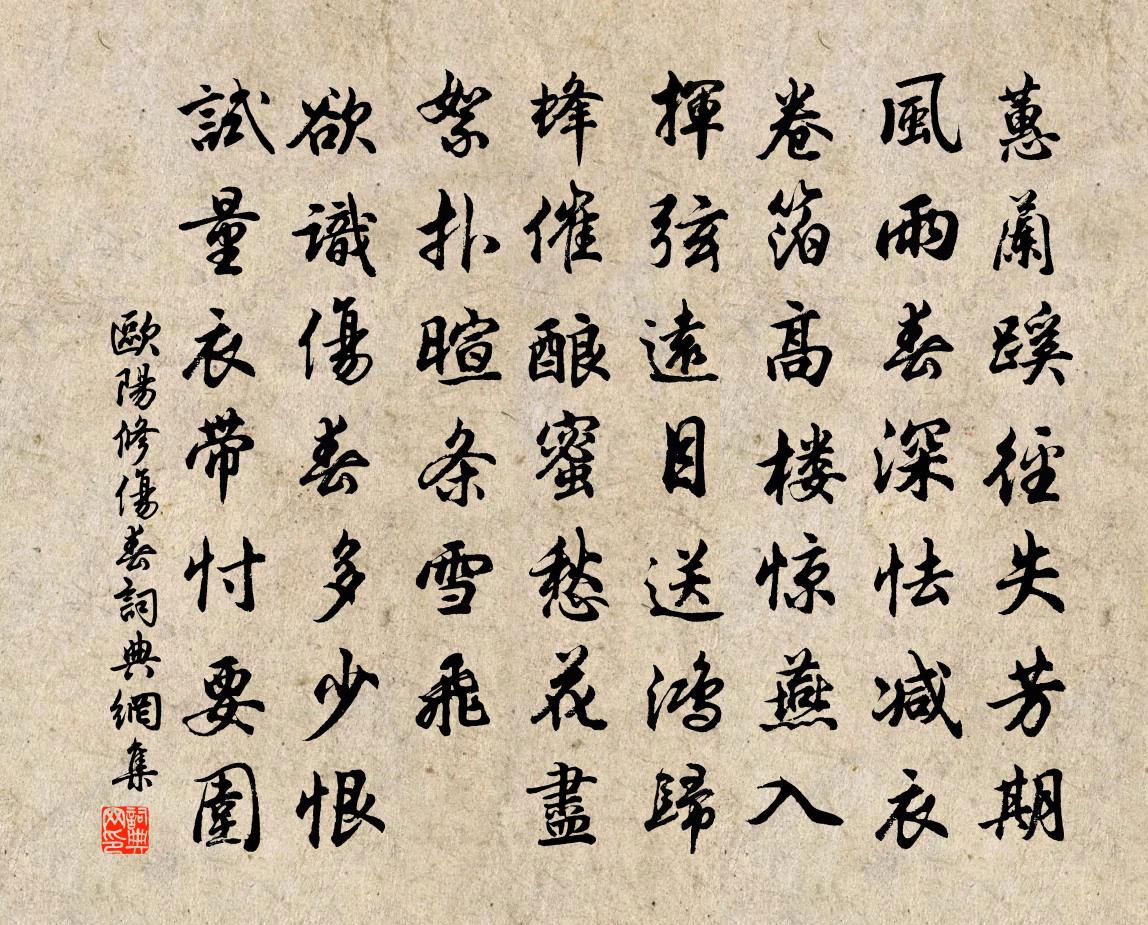 蕙蘭蹊徑失芳期
風雨春深怯减衣
卷箔高楼惊燕入
揮弦遠目送鸿歸
蜂催酿蜜愁花盡
絮扑暄条雪飛
欲識傷春多少恨
試量衣带忖要圍
歐陽修傷春詞典網集
詞典网印